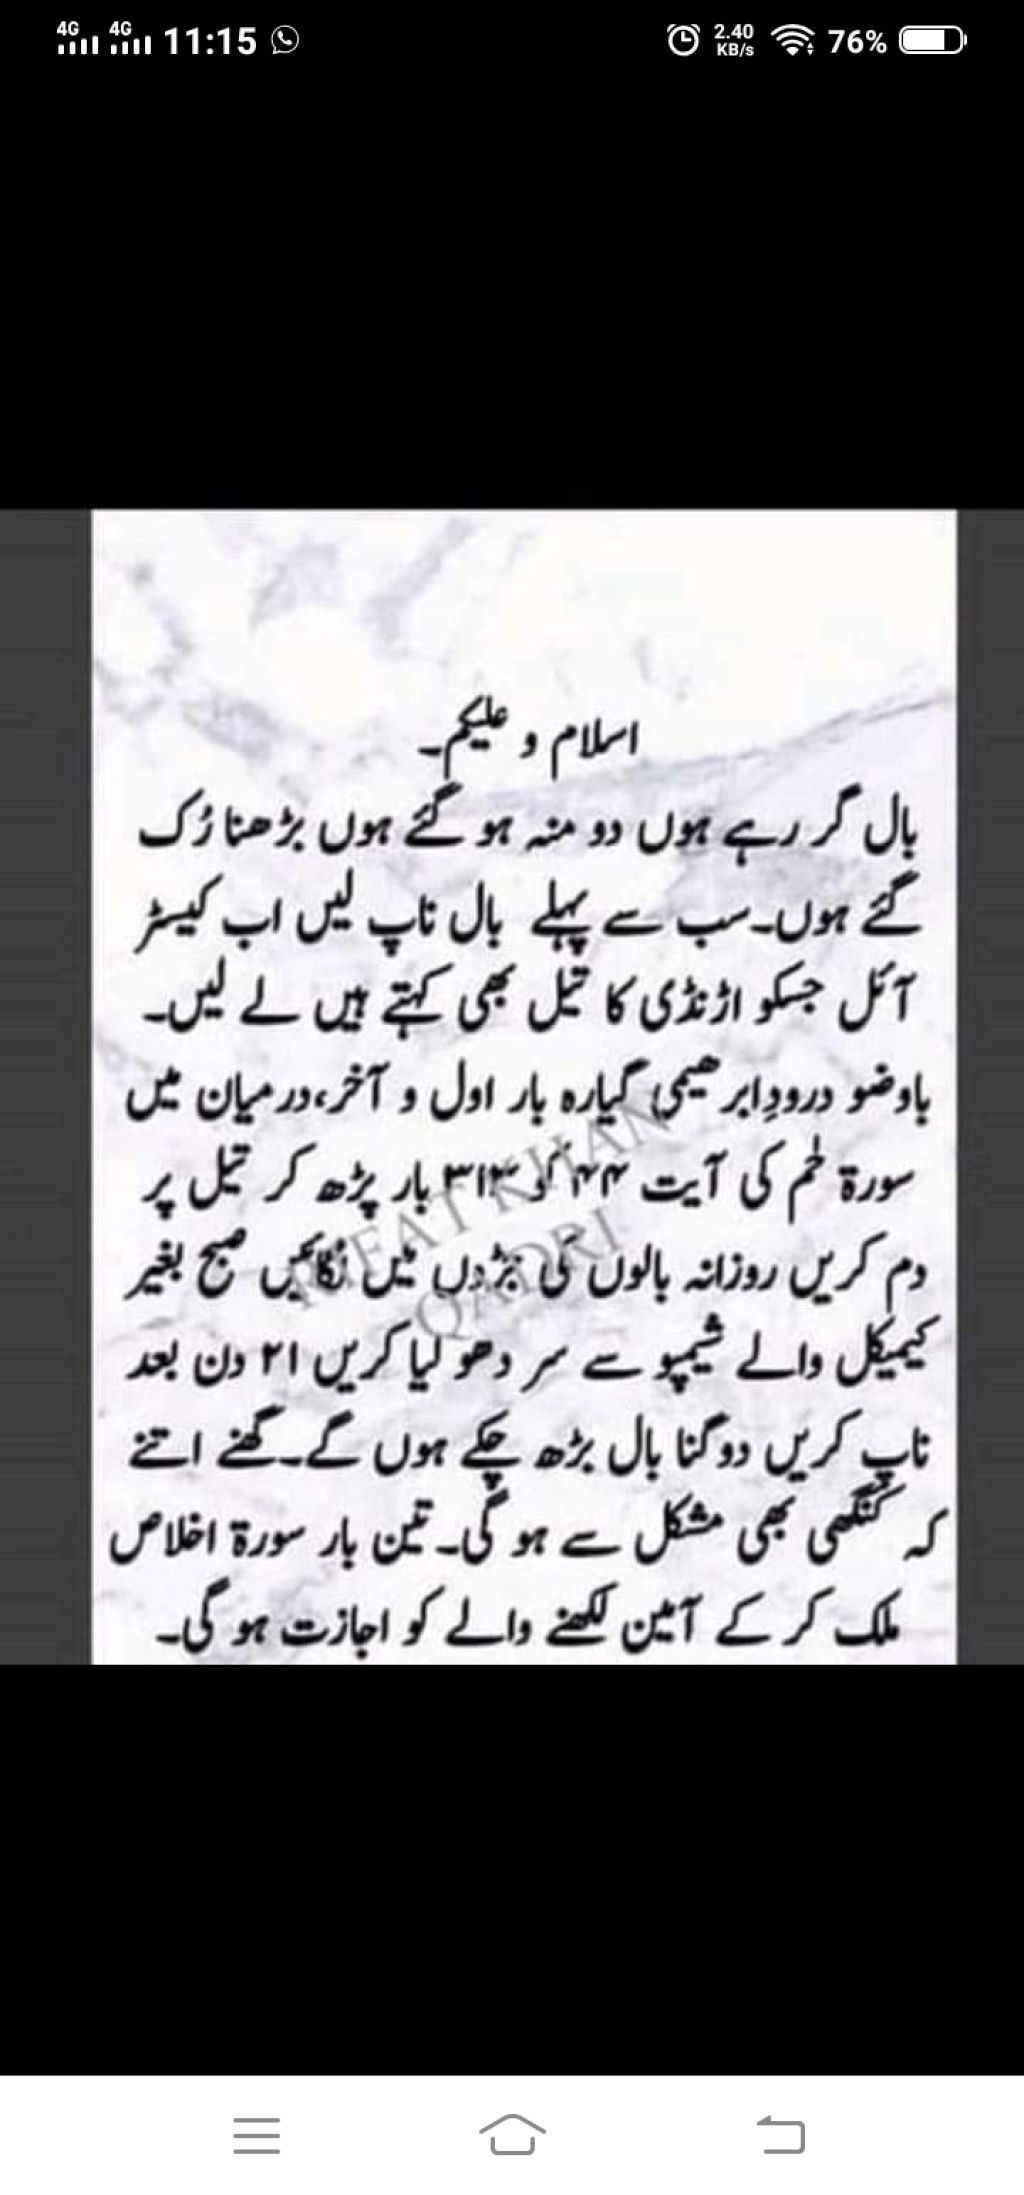 4G 4G 11:15 2.40 KB/s 76%
اسلام و علیکم۔
بال گر رہے ہوں دو منہ ہو گئے ہوں بڑھنا رُک
گئے ہوں۔سب سے پہلے بال ناپ لیں اب کیسٹر
آئل جسکو اڑنڈی کا تیل بھی کہتے ہیں لے لیں۔
باوضو درودِابرھیمی گیارہ بار اول و آخر،درمیان میں
سورۃ حٰم کی آیت ۴۴ کو ۳۱۳ بار پڑھ کر تیل پر
دم کریں روزانہ بالوں کی جڑدں میں لگائیں صبح بغیر
کیمیکل والے شیمپو سے سر دھو لیا کریں ۲۱ دن بعد
ناپ کریں دوگنا بال بڑھ چکے ہوں گے۔گھنے اتنے
کہ کنگھی بھی مشکل سے ہو گی۔تین بار سورۃ اخلاص
ملک کر کے آمین لکھنے والے کو اجازت ہو گی۔
KHAN
QADRI